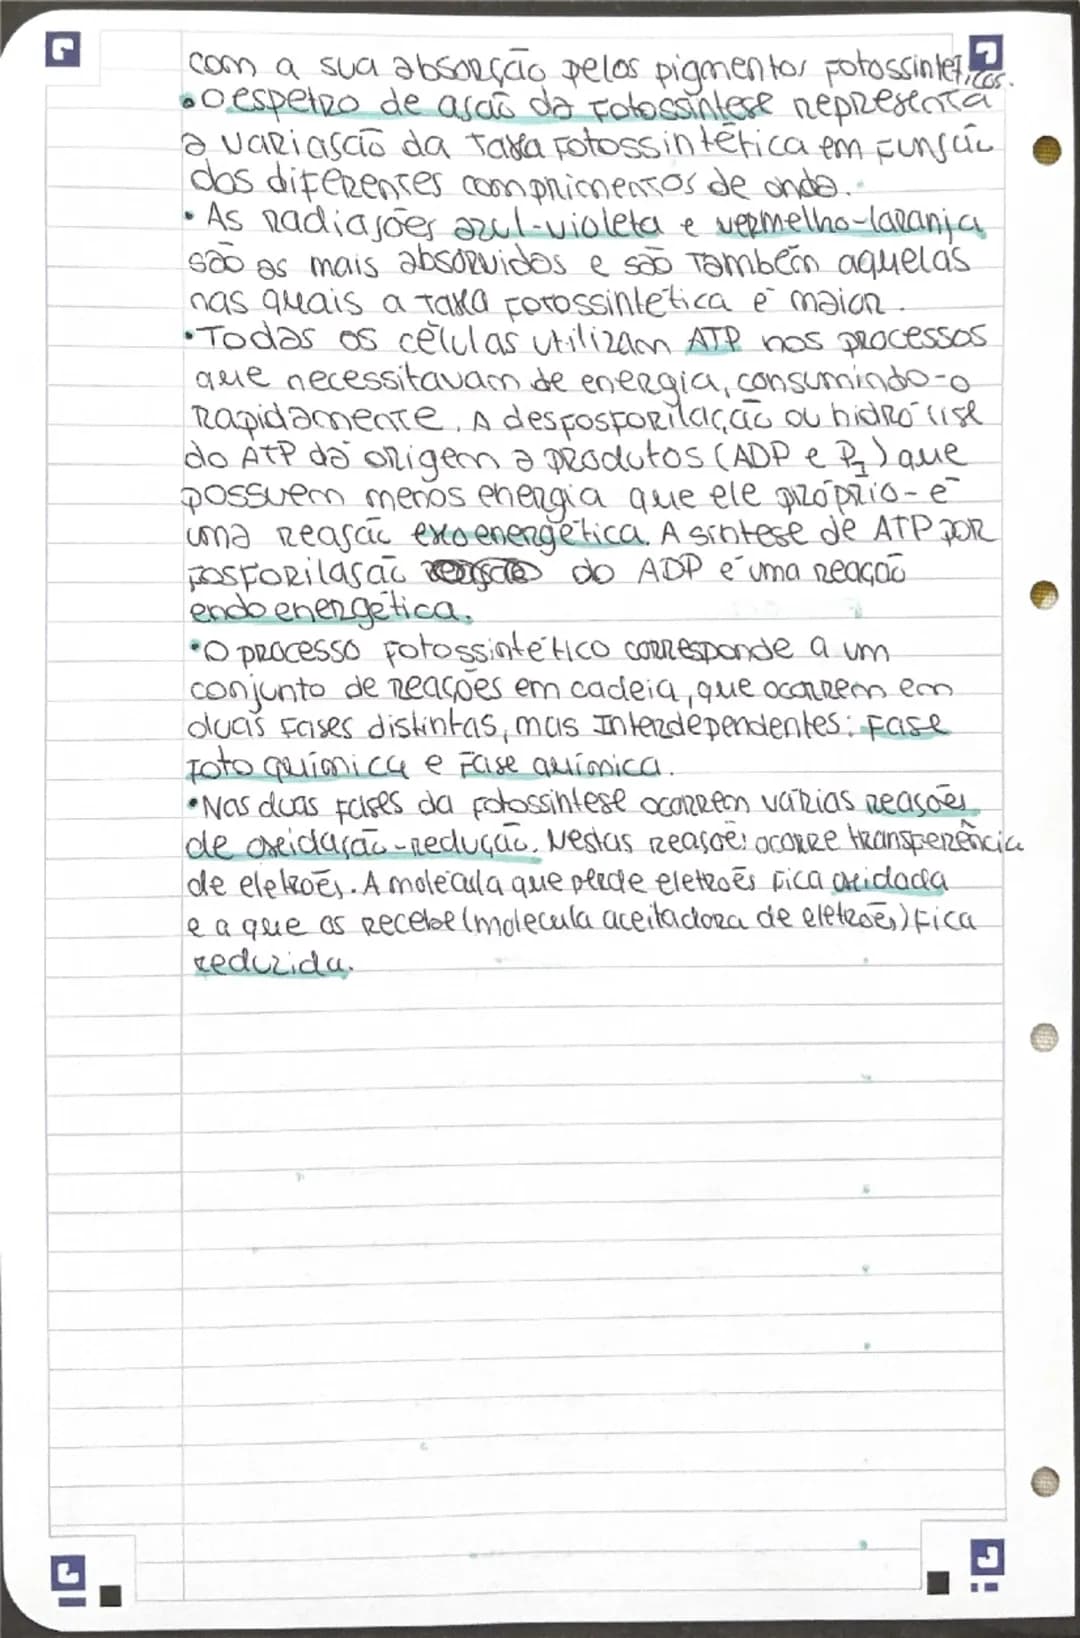 com a sua absorção pelos pigmentos fotossintéticos.
• O espetro de ação da fotossíntese representa
a variação da taxa fotossintética em função
dos diferentes comprimentos de onda.
• As radiações azul-violeta e vermelho-laranja
são as mais absorvidos e são também aquelas
nas quais a taxa fotossintética é maior.
• Todas os células utilizam ATP nos processos
que necessitavam de energia, consumindo-o
rapidamente. A desfosforilação ou hidrólise
do ATP dá origem a produtos (ADP e Pi) que
possuem menos energia que ele próprio - é
uma reação exoenergética. A síntese de ATP por
fosforilação do ADP é uma reação
endoenergética.
• O processo fotossintético corresponde a um
conjunto de reações em cadeia, que ocorrem em
duas fases distintas, mas Interdependentes: Fase
fotoquímica e Fase química.
• Nas duas fases da fotossíntese ocorrem várias reações
de oxidação-redução. Nestas reações ocorre transferência
de eletrões. A molécula que perde eletrões fica oxidada
e a que os recebe (molécula aceitadora de eletrões) fica
reduzida.